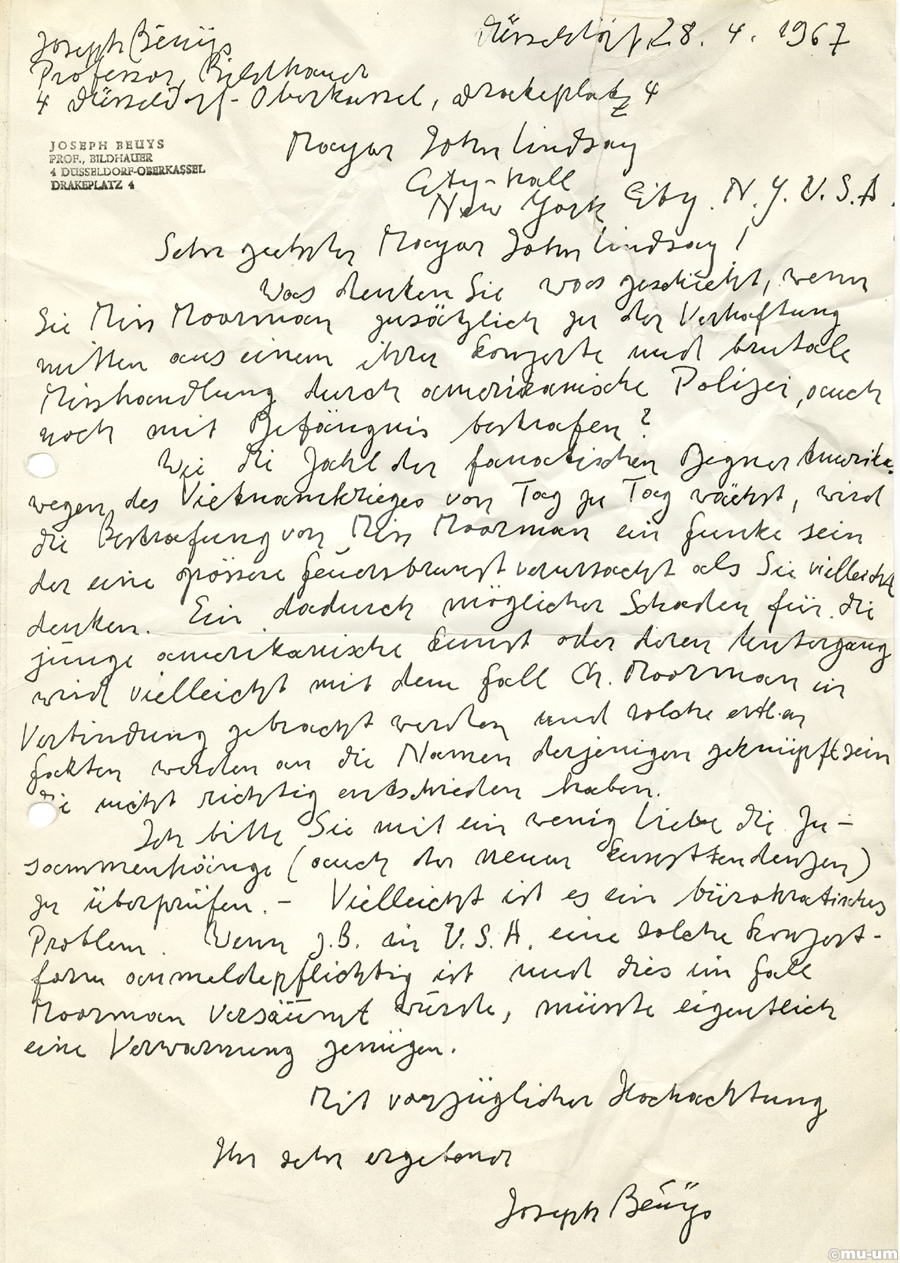 Joseph Beuys
Düsseldorf, 28. 4. 1967
Professor, Bildhauer
4 Düsseldorf-Oberkassel, Drakeplatz 4
JOSEPH BEUYS
PROF., BILDHAUER
4 DÜSSELDORF-OBERKASSEL
DRAKEPLATZ 4
Mayar John Lindsay
City-hall
New York City. N.Y. U.S.A.
Sehr geehrter Mayar John Lindsay!
Was denken Sie was geschieht, wenn
Sie Miss Moorman zusätzlich zu der Verhaftung
mitten aus einem ihrer Konzerte und brutale
Misshandlung durch amerikanische Polizei, auch
noch mit Gefängnis bestrafen?
Wie die Zahl der fanatischen Gegner Amerikas
wegen des Vietnamkrieges von Tag zu Tag wächst, wird
die Bestrafung von Miss Moorman ein Funke sein
der eine grössere Feuersbrunst verursacht als Sie vielleicht
denken. Ein dadurch möglicher Schaden für die
junge amerikanische Kunst oder deren Untergang
wird vielleicht mit dem Fall Ch. Moorman in
Verbindung gebracht werden und solche
Fakten werden an die Namen derjenigen geknüpft sein
die nicht richtig entschieden haben.
Ich bitte Sie mit ein wenig Liebe die Zu-
sammenhänge (auch der neuen Kunsttendenzen)
zu überprüfen. - Vielleicht ist es ein bürokratisches
Problem. Wenn z.B. in U.S.A. eine solche Konzert-
form anmeldepflichtig ist und dies im Fall
Moorman versäumt wurde, müsste eigentlich
eine Verwarnung genügen.
Mit vorzüglicher Hochachtung
Ihr sehr ergebener
Joseph Beuys
©mu-um